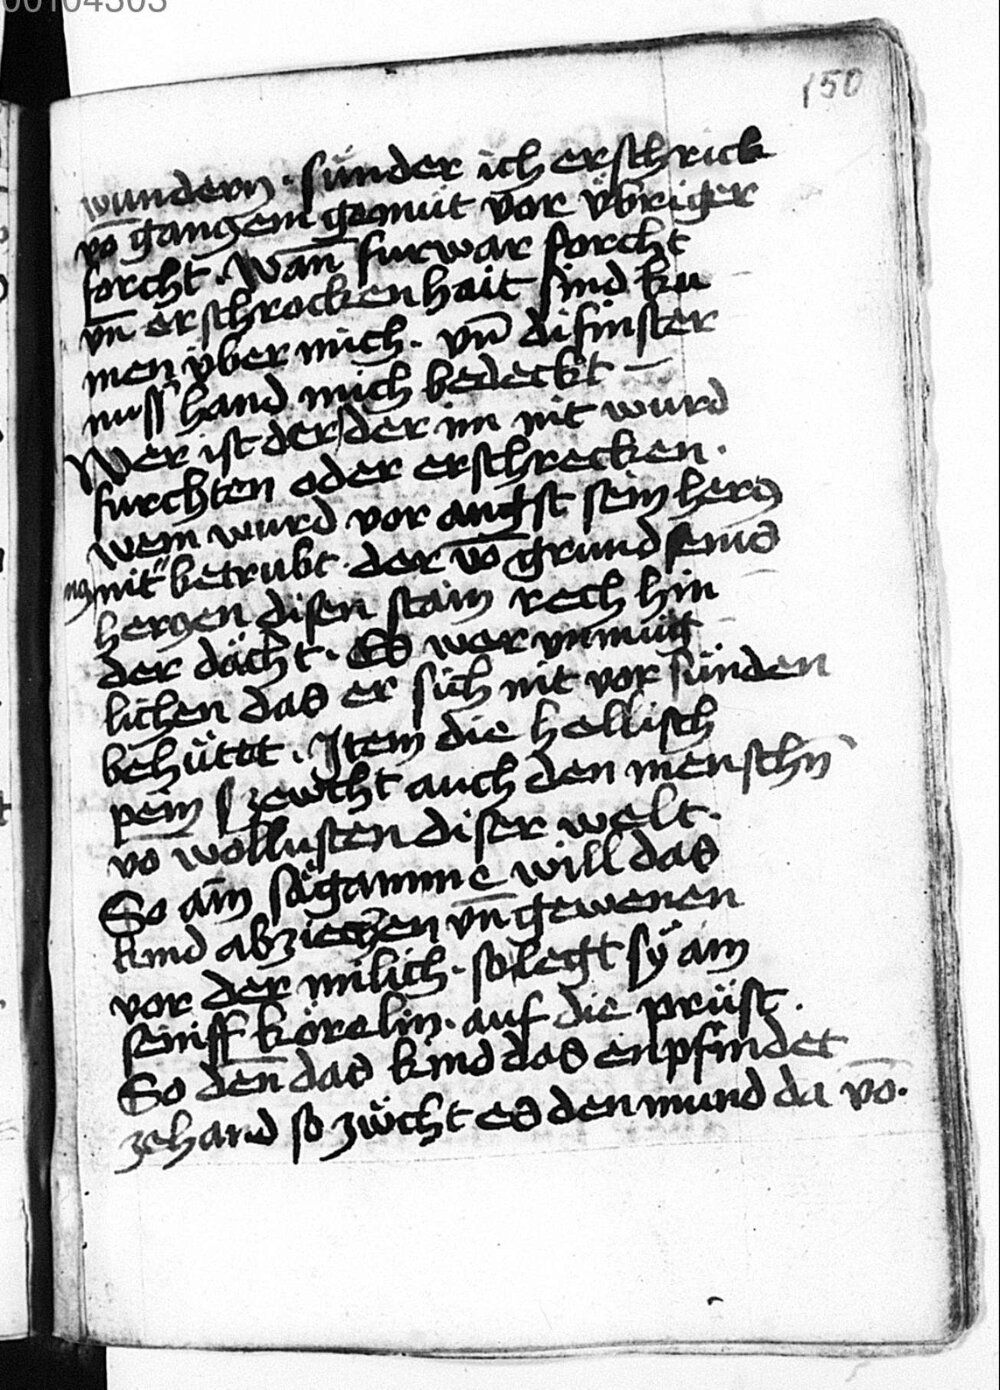 00104303
150
wundern . sunder ich erschrick
vō ganczem gemüt vor übriger
forcht . Wañ furwar forcht
vn̄ erschrockenhait sind ku
men über mich . vn̄ di finster
nuss hand mich bedeckt –
Wer ist der der im nit wurd
furchten oder erschrecken .
wem wurd vor angst sein hercz
nit betrubt . der vō grund seins
herczen disen stain rech hin
der dächt . Es wer vnmüg
lichen das er sich nit vor sünden
behüttt . Item die hellisch
pein zewcht auch den menschn̄
vō wollusten diser welt .
So ain sägamme will das
kind abziechen vn̄ gewenen
vor der milich . so legt sÿ ain
seniff körelin . auf die prüst .
So deñ das kind das enpfindet
zehand so zwcht es den mund da vō .